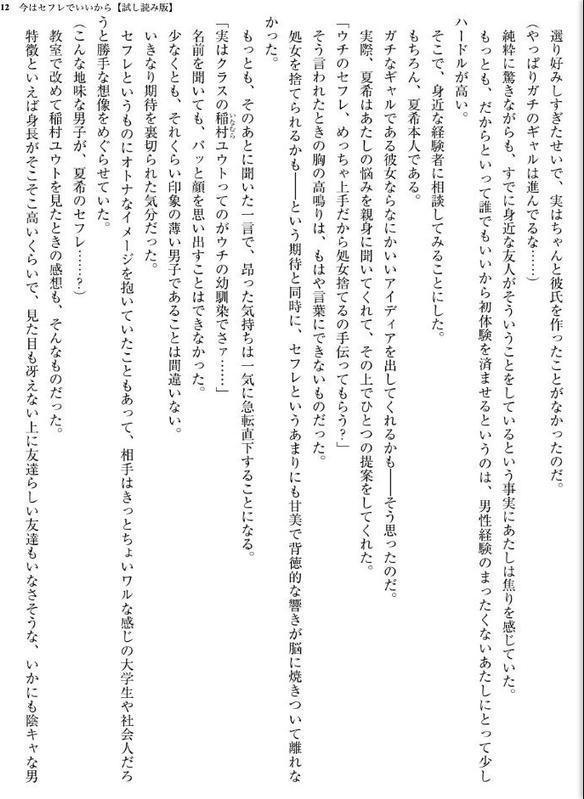 12　今はセフレでいいから【試し読み版】
選り好みしすぎたせいで、実はちゃんと彼氏を作ったことがなかったのだ。
（やっぱりガチのギャルは進んでるな……）
純粋に驚きながらも、すでに身近な友人がそういうことをしているという事実にあたしは焦りを感じていた。
もっとも、だからといって誰でもいいから初体験を済ませるというのは、男性経験のまったくないあたしにとって少し
ハードルが高い。
そこで、身近な経験者に相談してみることにした。
もちろん、夏希本人である。
ガチなギャルである彼女ならなにかいいアイディアを出してくれるかも――そう思ったのだ。
実際、夏希はあたしの悩みを親身に聞いてくれて、その上でひとつの提案をしてくれた。
「ウチのセフレ、めっちゃ上手だから処女捨てるの手伝ってもらう？」
そう言われたときの胸の高鳴りは、もはや言葉にできないものだった。
処女を捨てられるかも――という期待と同時に、セフレというあまりにも甘美で背徳的な響きが脳に焼きついて離れな
かった。
もっとも、そのあとに聞いた一言で、昂った気持ちは一気に急転直下することになる。
「実はクラスの稲村ユウトってのがウチの幼馴染でさァ……」
名前を聞いても、パッと顔を思い出すことはできなかった。
少なくとも、それくらい印象の薄い男子であることは間違いない。
いきなり期待を裏切られた気分だった。
セフレというものにオトナなイメージを抱いていたこともあって、相手はきっとちょいワルな感じの大学生や社会人だろ
うと勝手な想像をめぐらせていた。
（こんな地味な男子が、夏希のセフレ……？）
教室で改めて稲村ユウトを見たときの感想も、そんなものだった。
特徴といえば身長がそこそこ高いくらいで、見た目も冴えない上に友達らしい友達もいなさそうな、いかにも陰キャな男